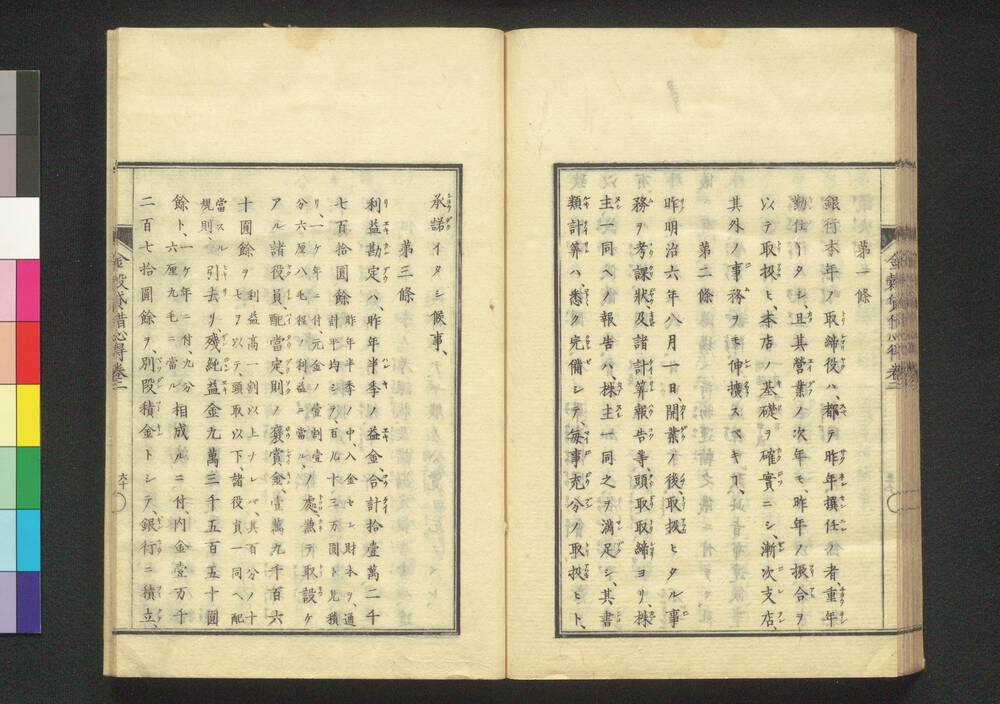 第一條
銀行本年ノ取締役ハ、都テ昨年撰任ノ者、重年
勤仕イタシ、且其營業ノ次年モ、昨年ノ振合ヲ
以テ取扱ヒ、本店ノ基礎ヲ確實ニシ、漸次支店、
其外ノ事務ヲモ伸擴スベキヿ、
第二條
昨明治六年八月一日、開業ノ後、取扱ヒタル事
務ヲ考課狀、及諸計算報告等、頭取取締ヨリ、株
主一同ヘ報告ハ、株主一同之ヲ滿足シ、其書
類計算ハ、悉ク完備シテ、毎事充分ノ取扱ヒト、
承諾イタシ候事、
第三條
利益勘定ハ、昨年半季ノ益金、合計拾壹萬二千
七百拾圓餘 昨年半季ノ中、入金セシ財本ヲ、通計平均シテ、百八十三万圓ト見積
リ、一ケ年ニ付、元金ノ壹割壹分六厘八毛程ノ利益ニ當ル、ノ處、兼テ取設ケ
アル諸役員配當定則ノ褒賞金、壹萬九千百六
十圓餘ヲ 利益高一割以上ナレバ、其百分ノ十七ヲ以テ、頭取以下、諸役員一同ヘ配
當スル規則、引去リ、殘純益金九萬三千五百五十圓
餘ト、一ケ年ニ付、九分六厘九毛ニ當ル 相成ルニ付、内金壹万千
二百七拾圓餘ヲ、別段積金トシテ、銀行ニ積立、
金穀貸借心得 卷二
六十